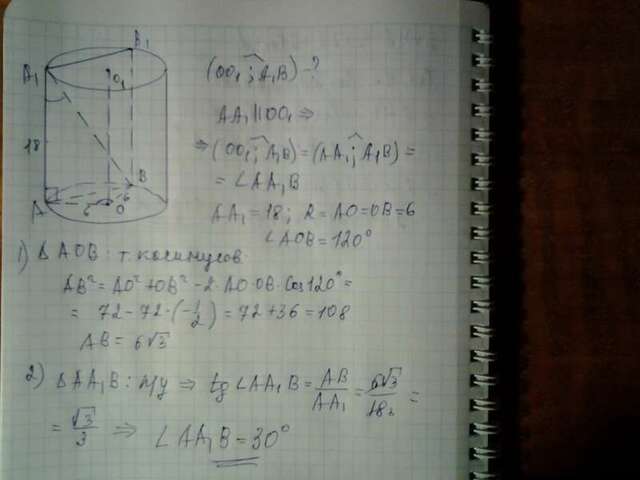 A₁
B₁
O₁
18
B
A
6
O
6
(OO₁ ;^ A₁B) - ?
AA₁ || OO₁ ⇒
⇒ (OO₁ ;^ A₁B) = (AA₁ ;^ A₁B) =
= ∠AA₁B
AA₁ = 18; R = AO = OB = 6
∠AOB = 120°
1) ΔAOB : т. косинусов
AB² = AO² + OB² - 2·AO·OB·Cos120° =
= 72 - 72·(-1/2) = 72 + 36 = 108
AB = 6√3
2) ΔAA₁B : п/у ⇒ tg∠AA₁B = AB/AA₁ = 6√3/18 =
= √3/3 ⇒ ∠AA₁B = 30°